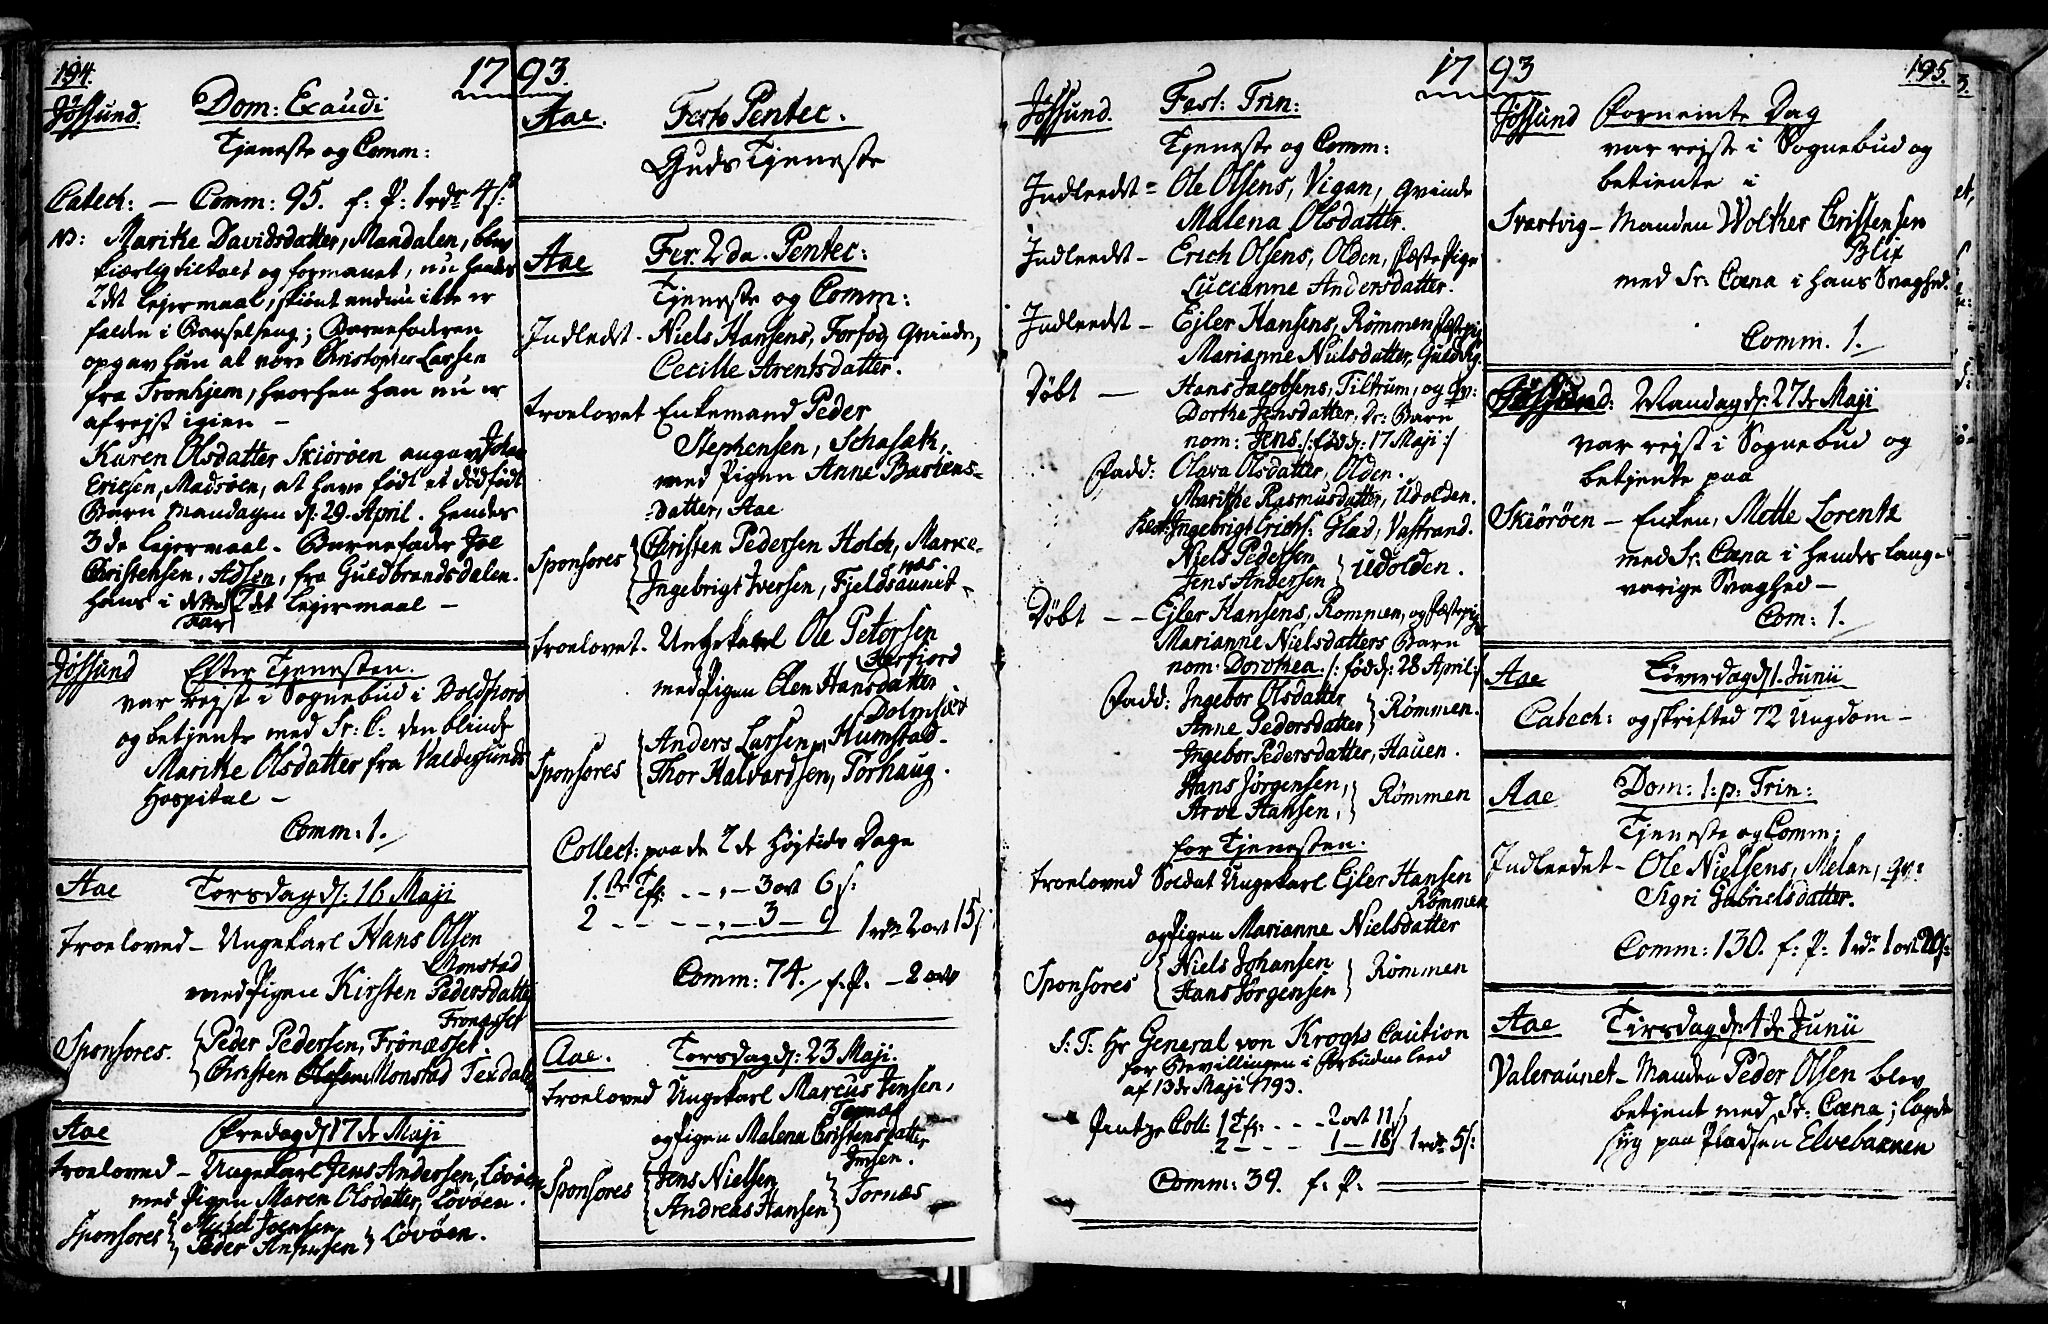 194. 1793.
Jøssund. Dom: Exaudi
Tjeneste og Comm:
Catech: — Comm: 95. f: P: 1 rdr 4 s:
NB: Maritte Davidsdatter, Mandalen, blev
kiærlig tiltalt og formanet, nu hendes
2det Lejermaal, skiønt endnu ikke er
falden i Barselseng; Barnefaderen
opgav hun at være Christopher Larsen
fra Tronhjem, hvorhen han nu er
afrejst igien —
Karen Olsdatter Skiørøen angav Johan
Ericsen, Madsøen, at have født et dødfødt
Barn Mandagen d: 29 April. hendes
3de Lejermaal — Barnefader Joe
Christensen, Adsen, fra Guldbrandsdalen.
hans i 2det Lejermaal —
Jøssund Efter Tjenesten.
var rejst i Sognebud i Boldfiord
og betjente med Sr: C: den blinde
Maritte Olsdatter fra Valdersunds
Hospital —
Comm: 1.
Aae Torsdag d: 16 Maji
Troeloved — Ungekarl Hans Olsen
Monstad
med Pigen Kirsten Pedersdatter
Frønesset
Sponsores. Peder Pedersen, Frönæsset.
Christen Monstad Texdal
Aae Fredag d 17de Maji
Troeloved — Ungekarl Jens Andersen, Lovøen
med Pigen Maren Olsdatter, Lovøen.
Sponsores Joensen
Peder Lovøen.
Aae. Festo Pentec.
Guds Tjeneste
Aae Fer. 2da. Pentec:
Tjeneste og Comm:
Indledt. Niels Hansens, Forfod, Qvinde,
Cecilie Arentsdatter.
Troelovet Enkemand Peder
Stephensen, Schasæth,
med Pigen Anne Bartens-
datter, Aae
Sponsores Christen Pedersen Holch, Marke-
næs.
Ingebrigt Iversen, Fjeldsaunet.
Troelovet. Ungekarl Ole Petersen
Herfiord
med Pigen Elen Hansdatter
Dolmset
Sponsores Anders Larsen, Humstad.
Thor Halvardsen, Torhaug.
Collect: paa de 2de Højtids Dage
1.ste — 3 ort 6 s:
2 — 3 — 9 1 rdr 2 ort 15 s:
Comm: 74. f. P. — 2 ort
Aae. Torsdag d: 23 Maji.
Troeloved Ungekarl Marcus Jensen,
Tornæs
og Pigen Malena Christensdatter
Imsen.
Sponsores Jens Nielsen
Andreas Hansen Tornæs
1793 195.
Jøssund. Fest: Trin:
Tjeneste og Comm:
Indleedt = Ole Olsens, Vigan, Qvinde
Malena Olsdatter.
Indleedt — Erich Olsens, Olden, Fæste Pige
Luccanne Andersdatter.
Indleedt — Ejler Hansens, Rømmen Fæstepig
Marianne Nielsdatter,
Døbt — Hans Jacobsens, Tiltrum, og Qv:
Dorthe Jensdatter, Dr: Barn
nom: Jens /: fød d: 17 Maji :/
Fadd: Olava Olsdatter, Olden.
Marithe Rasmusdatter, Udolden.
Ingebrigt Erichs: Glad, Vastrand.
Niels Pedersen
Jens Andersen Udolden.
Døbt — — Ejler Hansens, Rommen, og Fæstepige
Marianne Nielsdatters Barn
nom: Dorothea /: fød d: 28 April :/
Fadd: Ingebor Olsdatter
Anne Pedersdatter Rømmen.
Ingebor Pedersdatter, Hauen.
Hans Jørgensen,
Arve Hansen, Rømmen
for Tjenesten.
Troeloved Soldat Ungekarl Ejler Hansen
Rømmen
og Pigen Marianne Nielsdatter
Sponsores Niels Johansen
Hans Jørgensen Rømmen
S: T: Hr General von Kroghs Caution
for Bevillingen i Forbudne Leed
af 13de Maji 1793.
Pintze Coll: 1 — 2 ort 11 s
2 — 1 — 18 1 rdr 5 s:
Comm: 39. f. P.
Jøssund Fornemte Dag
var rejste i Sognebud og
betiente i
Svartvig — Manden Wolker Christensen
Blix
med Sr: Coena i hans Svaghed.
Comm. 1.
Jøssund: Mandag d: 27de Maji
var rejst i Sognebud og
betjente paa
Skiörøen — Enken, Mette Lorentz
med Sr: Coena i hendes lang-
varige Svaghed —
Com: 1.
Aae Løverdag d 1. Junii
Catech: og skrifted 72 Ungdom —
Aae Dom: 1: p: Trin:
Tjeneste og Comm:
Indleedet — Ole Nielsens, Melan, qv:
Sigri Gabrielsdatter.
Comm: 130. f: P: 1 rdr 1 ort 20 s:
Aae Tirsdag d: 4de Junii
Valeraunet — Manden Peder Olsen blev
betjent med Sr: Coena; lagde
syg paa Pladsen Elvebakken